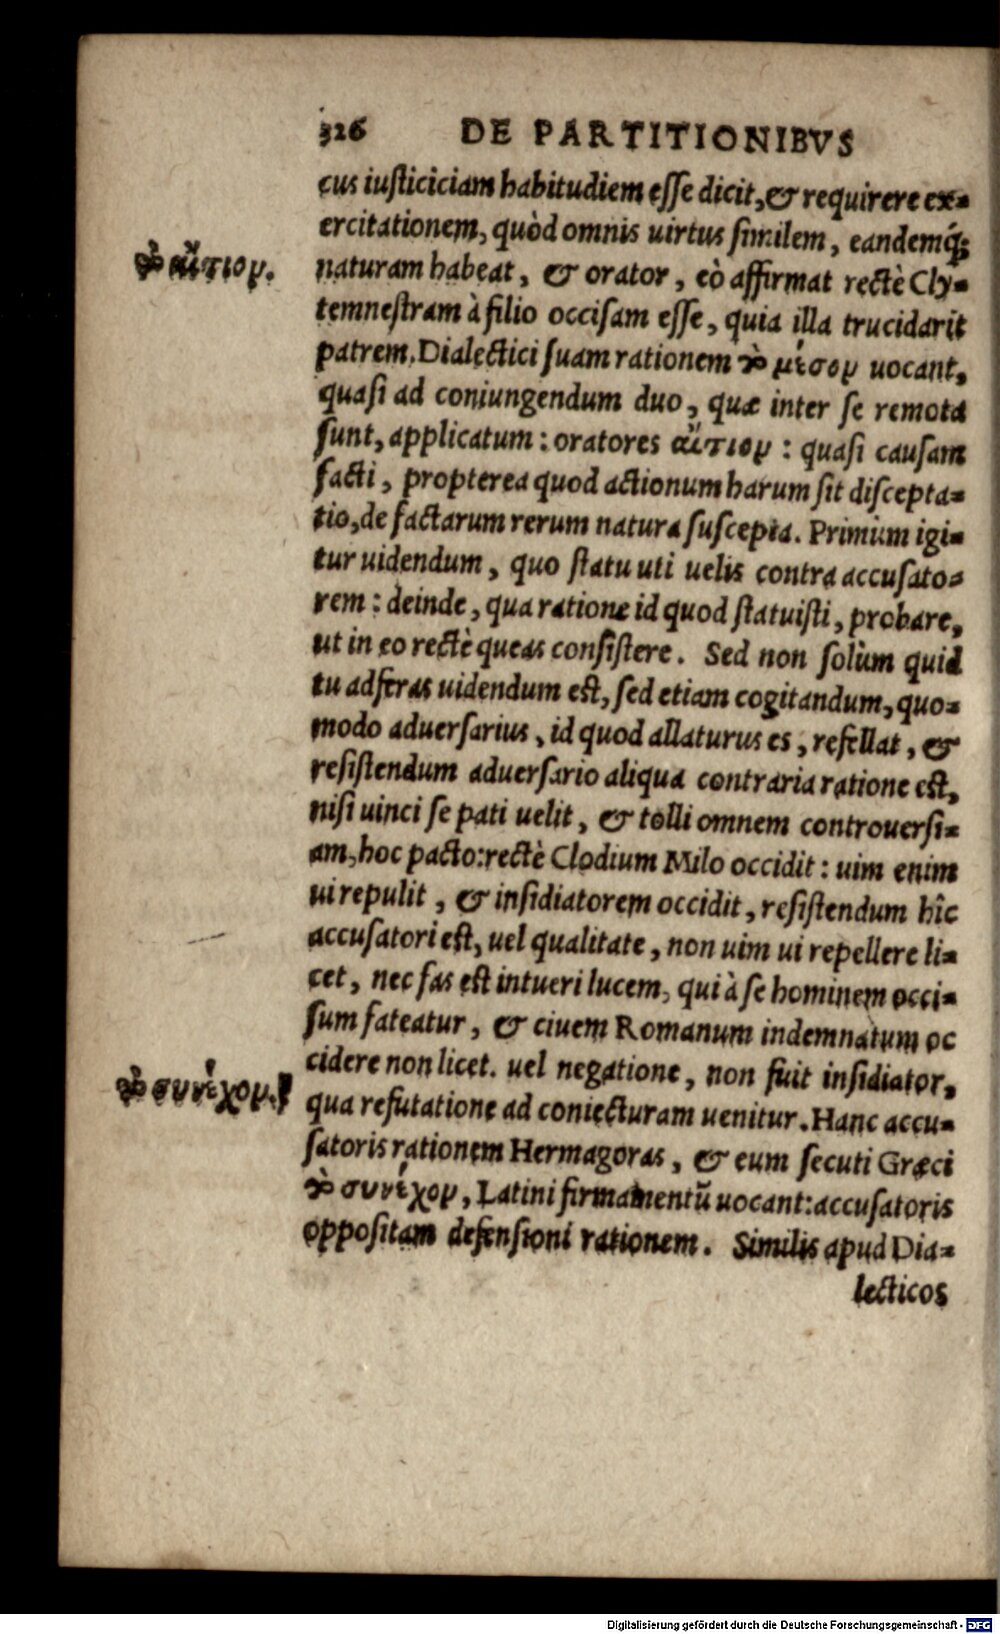 326 DE PARTITIONIBVS
cus iusticiciam habitudiem esse dicit, & requirere ex-
ercitationem, quòd omnis uirtus similem, eandemq́;
τὸ αἴτιον.
naturam habeat, & orator, eò affirmat rectè Cly-
temnestram à filio occisam esse, quia illa trucidarit
patrem. Dialectici suam rationem τὸ μέσον uocant,
quasi ad coniungendum duo, quæ inter se remota
sunt, applicatum: oratores αἴτιον: quasi causam
facti, propterea quod actionum harum sit discepta-
tio, de factarum rerum natura suscepta. Primùm igi-
tur uidendum, quo statu uti uelis contra accusato-
rem: deinde, qua ratione id quod statuisti, probare,
ut in eo rectè queas consistere. Sed non solùm quid
tu adferas uidendum est, sed etiam cogitandum, quo-
modo aduersarius, id quod allaturus es, refellat, &
resistendum aduersario aliqua contraria ratione est,
nisi uinci se pati uelit, & tolli omnem controuersi-
am, hoc pacto: rectè Clodium Milo occidit: uim enim
ui repulit, & insidiatorem occidit, resistendum hîc
accusatori est, uel qualitate, non uim ui repellere li-
cet, nec fas est intueri lucem, qui à se hominem occi-
sum fateatur, & ciuem Romanum indemnatum oc
cidere non licet. uel negatione, non fuit insidiator,
τὸ συνέχον.
qua refutatione ad coniecturam uenitur. Hanc accu-
satoris rationem Hermagoras, & eum secuti Græci
τὸ συνέχον, Latini firmamentũ uocant: accusatoris
oppositam defensioni rationem. Similis apud Dia-
lecticos
Digitalisierung gefördert durch die Deutsche Forschungsgemeinschaft - DFG